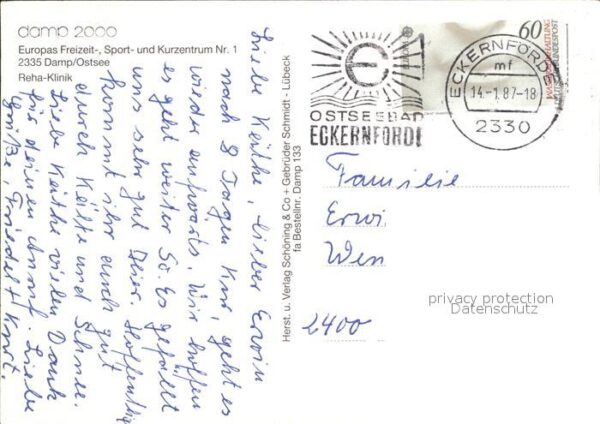 damp 2000
Europas Freizeit-, Sport- und Kurzentrum Nr. 1
2335 Damp/Ostsee
Reha-Klinik
Liebe Käthe, lieber Erwin
nach 8 Tagen Kur, geht es
wieder aufwärts. Wir hoffen
es geht weiter so. Es gefällt
uns sehr gut hier. Hoffentlich
kommt ihr auch gut
durch Kälte und Schnee.
Liebe Käthe vielen Dank
für deinen Anruf. Liebe
Grüße, Friedel + Kurt.
Herst. u. Verlag Schöning & Co + Gebrüder Schmidt - Lübeck
fa Bestellnr. Damp 133
OSTSEEBAD
ECKERNFÖRDE
60
DEUTSCHE BUNDESPOST
EUROPA
ECKERNFÖRDE
mf
14.-1.87-18
2330
Familie
Erwi
Wen
2400
privacy protection
Datenschutz